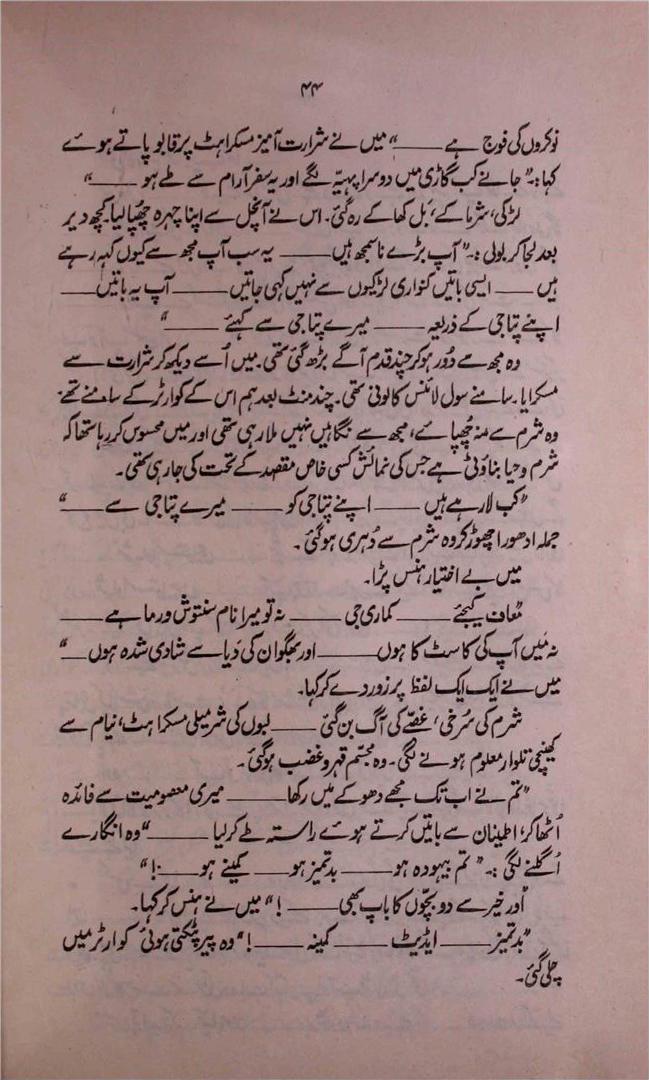 ۴۴
نوکروں کی فوج ہے ——“ میں نے شرارت آمیز مسکراہٹ پر قابو پاتے ہوئے
کہا:۔” جانے کب گاڑی میں دوسرا پہیّہ لگے اور یہ سفر آرام سے طے ہو ——“
لڑکی، شرما کے، بَل کھا کے رہ گئی۔ اس نے آنچل سے اپنا چہرہ چھُپا لیا۔ کچھ دیر
بعد لجا کر بولی :۔” آپ بڑے ناسمجھ ہیں —— یہ سب آپ مجھ سے کیوں کہہ رہے
ہیں —— ایسی باتیں کنواری لڑکیوں سے نہیں کہی جاتیں —— آپ یہ باتیں ——
اپنے پتا جی کے ذریعہ —— میرے پتا جی سے کہئے ——“
وہ مجھ سے دُور ہو کر چند قدم آگے بڑھ گئی تھی۔ میں اُسے دیکھ کر شرارت سے
مسکرایا۔ سامنے سول لائنس کالونی تھی۔ چند منٹ بعد ہم اس کے کوارٹر کے سامنے تھے۔
وہ شرم سے منہ چھُپائے، مجھ سے نگاہیں نہیں ملا رہی تھی اور میں محسوس کر رہا تھا کہ
شرم و حیا بناوٹی ہے جس کی نمائش کسی خاص مقصد کے تحت کی جا رہی تھی۔
”کب لا رہے ہیں —— اپنے پتا جی کو —— میرے پتا جی سے ——“
جملہ ادھورا چھوڑ کر وہ شرم سے دُہری ہو گئی۔
میں بے اختیار ہنس پڑا۔
”معاف کیجئے —— کماری جی —— نہ تو میرا نام سنتوش ورما ہے ——
نہ مَیں آپ کی کاسٹ کا ہوں —— اور بھگوان کی دَیا سے شادی شدہ ہوں ——“
میں نے ایک ایک لفظ پر زور دے کر کہا۔
شرم کی سُرخی، غصّے کی آگ بن گئی —— لبوں کی شرمیلی مسکراہٹ، نیام سے
کھینچی تلوار معلوم ہونے لگی۔ وہ مجسّم قہر و غضب ہو گئی۔
”تم نے اب تک مجھے دھوکے میں رکھا —— میری معصومیت سے فائدہ
اُٹھا کر، اطینان سے باتیں کرتے ہوئے راستہ طے کر لیا ——“ وہ انگارے
اُگلنے لگی :۔” تم بیہودہ ہو —— بدتمیز ہو —— کمینے ہو ——!“
”اَور خیر سے دو بچّوں کا باپ بھی ——!“ میں نے ہنس کر کہا۔
”بدتمیز —— ایڈیٹ —— کمینہ ——!“ وہ پیر پٹکتی ہوئی کوارٹر میں
چلی گئی۔